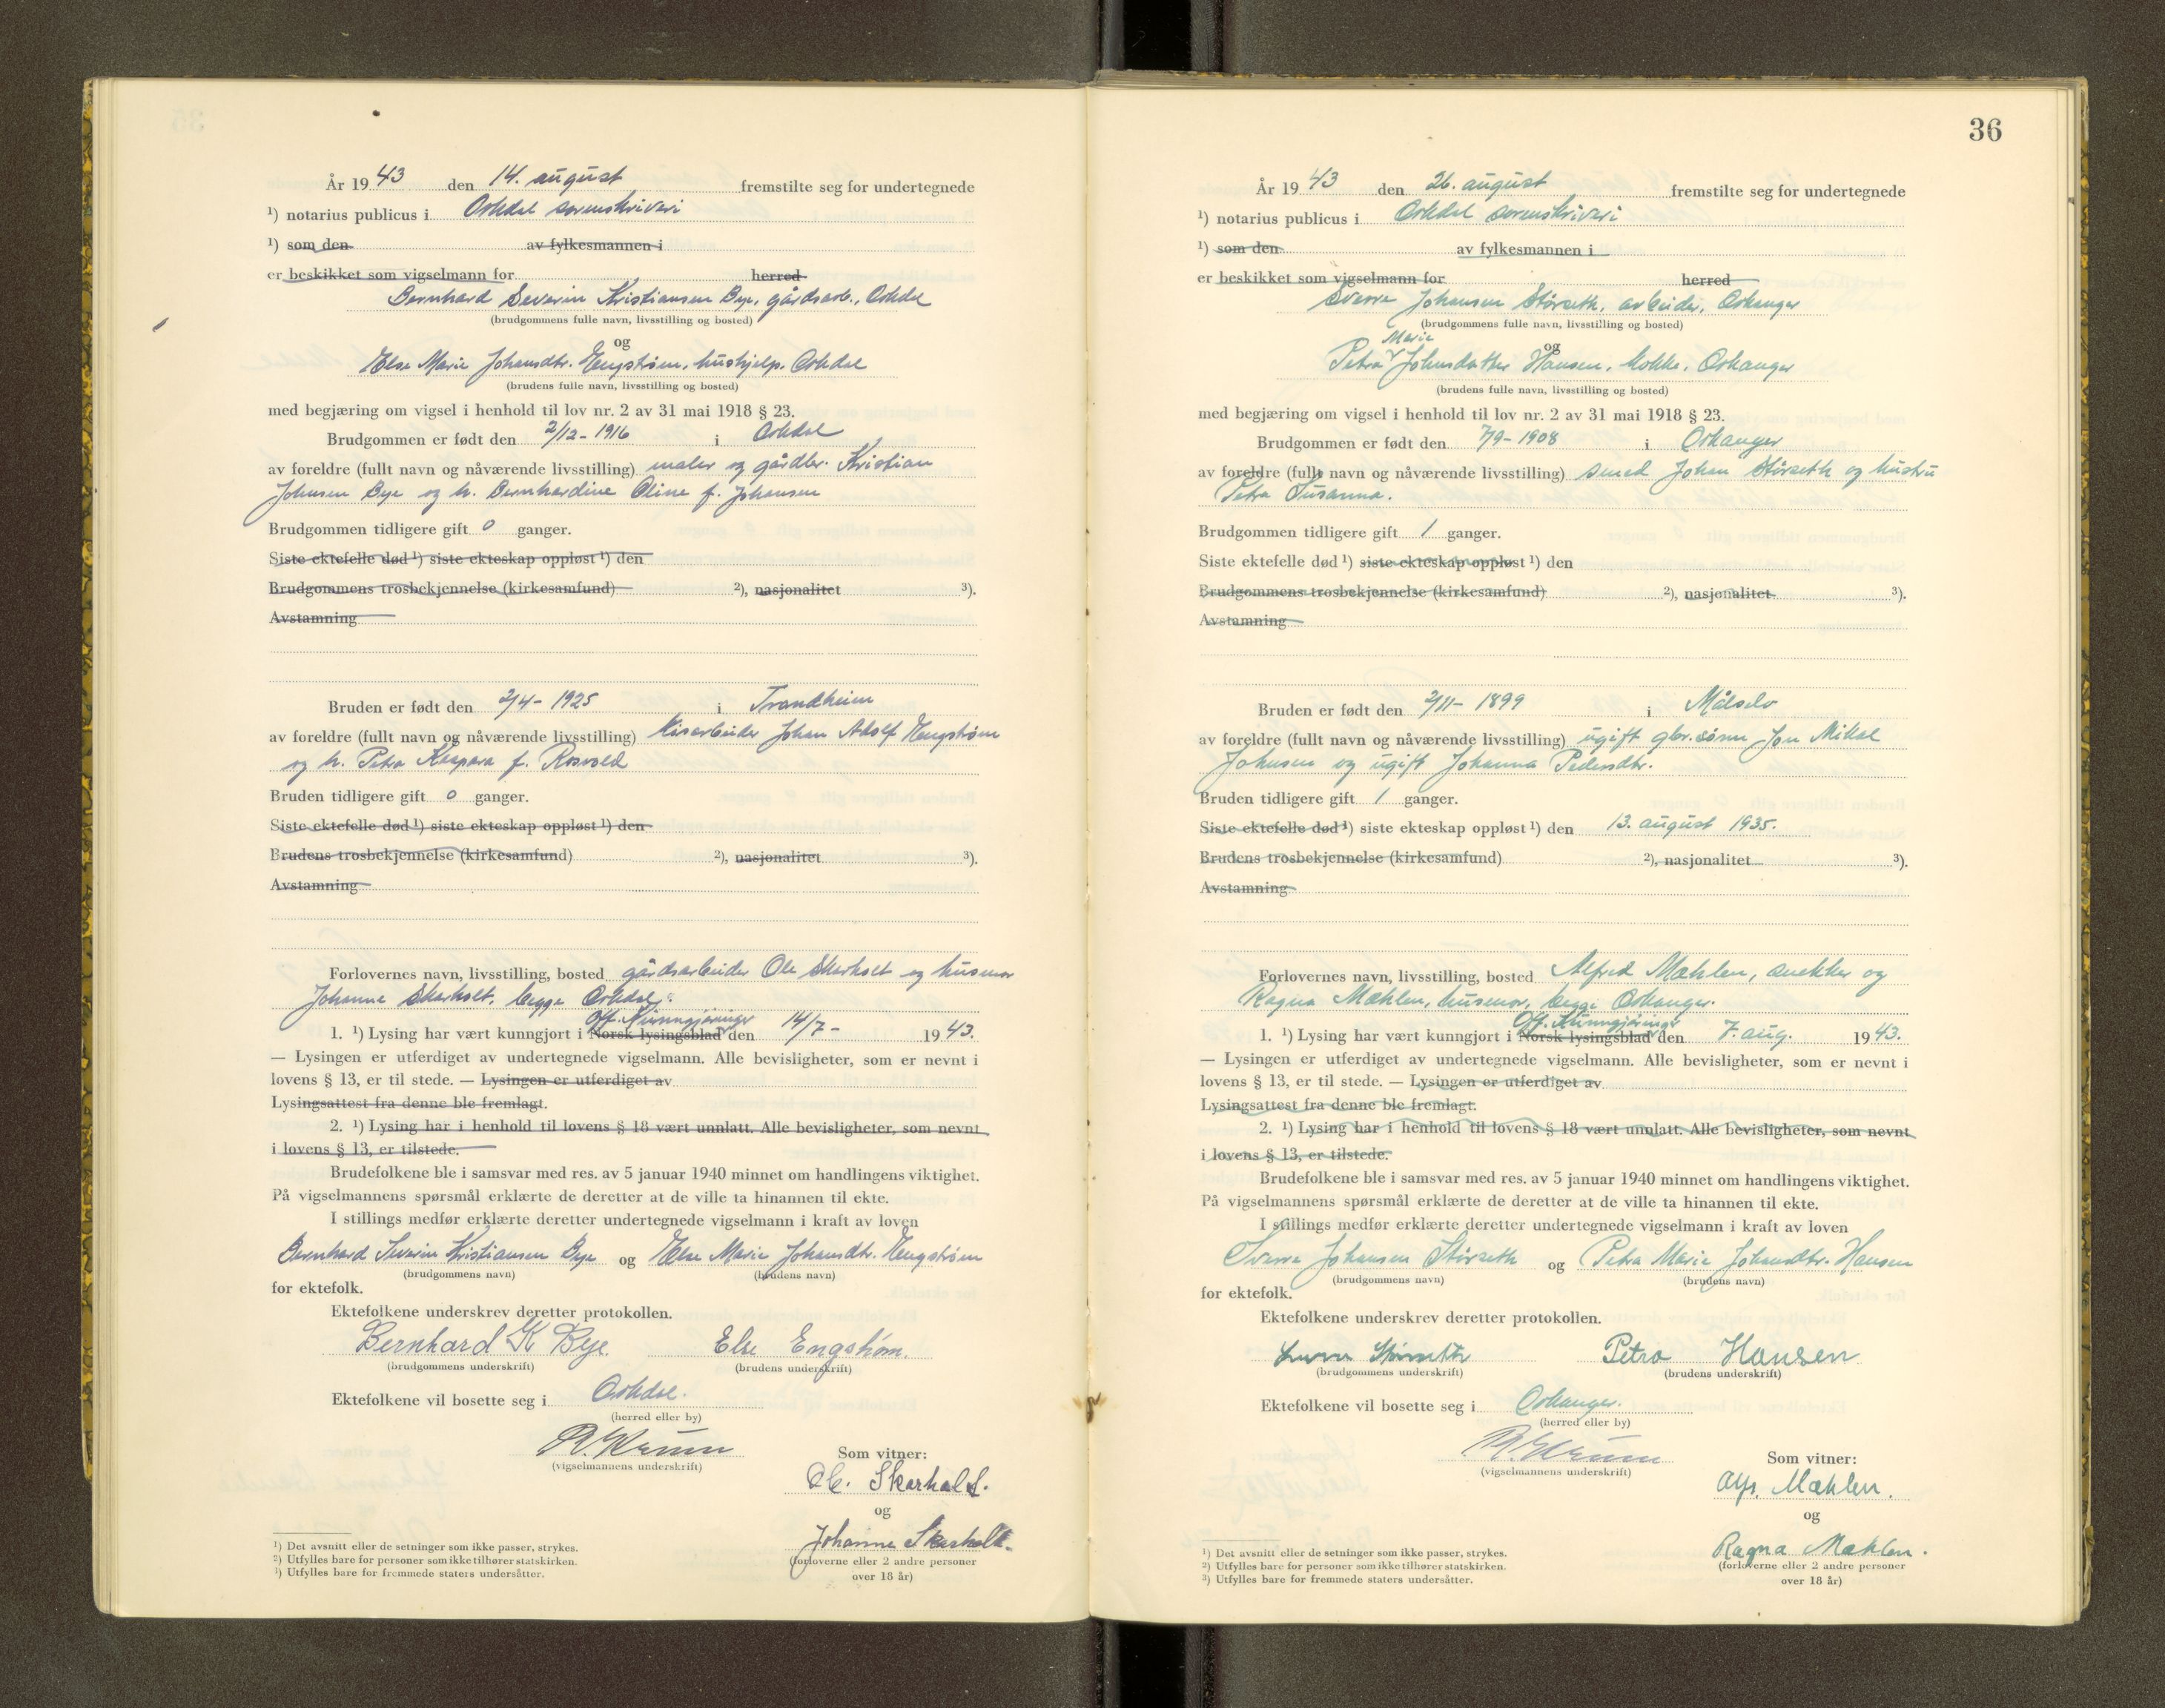 År 19 43 den 14. august fremstilte seg for undertegnede
¹) notarius publicus i Orkdal sorenskriveri
¹) som den av fylkesmannen i
er beskikket som vigselmann for herred
Bernhard Severin Kristiansen Bye, gårdsarb., Orkdal
(brudgommens fulle navn, livsstilling og bosted)
og
Else Marie Johansdtr. Engstrøm, hushjelp. Orkdal
(brudens fulle navn, livsstilling og bosted)
med begjæring om vigsel i henhold til lov nr. 2 av 31 mai 1918 § 23.
Brudgommen er født den 2/12-1916 i Orkdal
av foreldre (fullt navn og nåværende livsstilling) maler og gårdbr. Kristian
Johnsen Bye og h. Bernhardine Oline f. Johansen
Brudgommen tidligere gift 0 ganger.
Siste ektefelle død ¹) siste ekteskap oppløst ¹) den
Brudgommens trosbekjennelse (kirkesamfund) ²), nasjonalitet ³).
Avstamning
Bruden er født den 2/4- 1925 i Trondheim
av foreldre (fullt navn og nåværende livsstilling) Johan Adolf Engstrøm
og h. Petra Kaspara f. Rosvold
Bruden tidligere gift 0 ganger.
Siste ektefelle død ¹) siste ekteskap oppløst ¹) den
Brudens trosbekjennelse (kirkesamfund) ²), nasjonalitet ³).
Avstamning
Forlovernes navn, livsstilling, bosted gårdsarbeider Ole Skarholt og husmor
Johanne Skarholt, begge Orkdal.
Off. Kunngjøringer
1. ¹) Lysing har vært kunngjort i Norsk lysingsblad den 14/7- 19 43.
— Lysingen er utferdiget av undertegnede vigselmann. Alle bevisligheter, som er nevnt i
lovens § 13, er til stede. — Lysingen er utferdiget av
Lysingsattest fra denne ble fremlagt.
2. ¹) Lysing har i henhold til lovens § 18 vært unnlatt. Alle bevisligheter, som nevnt
i lovens § 13, er tilstede.
Brudefolkene ble i samsvar med res. av 5 januar 1940 minnet om handlingens viktighet.
På vigselmannens spørsmål erklærte de deretter at de ville ta hinannen til ekte.
I stillings medfør erklærte deretter undertegnede vigselmann i kraft av loven
Bernhard Severin Kristiansen Bye og Else Marie Johansdtr. Engstrøm
(brudgommens navn) (brudens navn)
for ektefolk.
Ektefolkene underskrev deretter protokollen.
Bernhard K Bye. Else Engstrøm.
(brudgommens underskrift) (brudens underskrift)
Ektefolkene vil bosette seg i Orkdal.
(herred eller by)
(vigselmannens underskrift)
Som vitner:
Ol. Skarholt.
og
Johanne Skarholt.
(forloverne eller 2 andre personer
over 18 år)
¹) Det avsnitt eller de setninger som ikke passer, strykes.
²) Utfylles bare for personer som ikke tilhører statskirken.
¹) Utfylles bare for fremmede staters undersåtter.
36
År 19 43 den 26. august fremstilte seg for undertegnede
¹) notarius publicus i Orkdal sorenskriveri
¹) som den av fylkesmannen i
er beskikket som vigselmann for herred
Sverre Johansen Størseth, arbeider, Orkanger
(brudgommens fulle navn, livsstilling og bosted)
og
Marie
Petra Johnsdatter Hansen, kokke, Orkanger
(brudens fulle navn, livsstilling og bosted)
med begjæring om vigsel i henhold til lov nr. 2 av 31 mai 1918 § 23.
Brudgommen er født den 7/9- 1908 i Orkanger
av foreldre (fullt navn og nåværende livsstilling) smed Johan Størseth og hustru
Petra Susanna.
Brudgommen tidligere gift 1 ganger.
Siste ektefelle død ¹) siste ekteskap oppløst ¹) den
Brudgommens trosbekjennelse (kirkesamfund) ²), nasjonalitet ³).
Avstamning
Bruden er født den 2/11- 1899 i Målselv
av foreldre (fullt navn og nåværende livsstilling) ugift gbr.sønn Jon Mikal
Johnsen og ugift Johanna Pedersdtr.
Bruden tidligere gift 1 ganger.
Siste ektefelle død ¹) siste ekteskap oppløst ¹) den 13. august 1935.
Brudens trosbekjennelse (kirkesamfund) ²), nasjonalitet ³).
Avstamning
Forlovernes navn, livsstilling, bosted Alfred Mæhlen, snekker og
Ragna Mæhlen, husmor, begge Orkanger.
Off. Kunngjøringer
1. ¹) Lysing har vært kunngjort i Norsk lysingsblad den 7. aug. 19 43.
— Lysingen er utferdiget av undertegnede vigselmann. Alle bevisligheter, som er nevnt i
lovens § 13, er til stede. — Lysingen er utferdiget av
Lysingsattest fra denne ble fremlagt.
2. ¹) Lysing har i henhold til lovens § 18 vært unnlatt. Alle bevisligheter, som nevnt
i lovens § 13, er tilstede.
Brudefolkene ble i samsvar med res. av 5 januar 1940 minnet om handlingens viktighet.
På vigselmannens spørsmål erklærte de deretter at de ville ta hinannen til ekte.
I stillings medfør erklærte deretter undertegnede vigselmann i kraft av loven
Sverre Johansen Størseth og Petra Marie Johansdtr. Hansen
(brudgommens navn) (brudens navn)
for ektefolk.
Ektefolkene underskrev deretter protokollen.
Sverre Størseth Petra Hansen
(brudgommens underskrift) (brudens underskrift)
Ektefolkene vil bosette seg i Orkanger.
(herred eller by)
(vigselmannens underskrift)
Som vitner:
Alf. Mæhlen.
og
Ragna Mæhlen.
(forloverne eller 2 andre personer
over 18 år)
¹) Det avsnitt eller de setninger som ikke passer, strykes.
²) Utfylles bare for personer som ikke tilhører statskirken.
³) Utfylles bare for fremmede staters undersåtter.